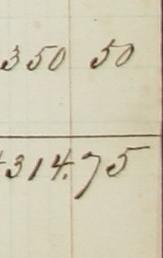 350 50
4314.75